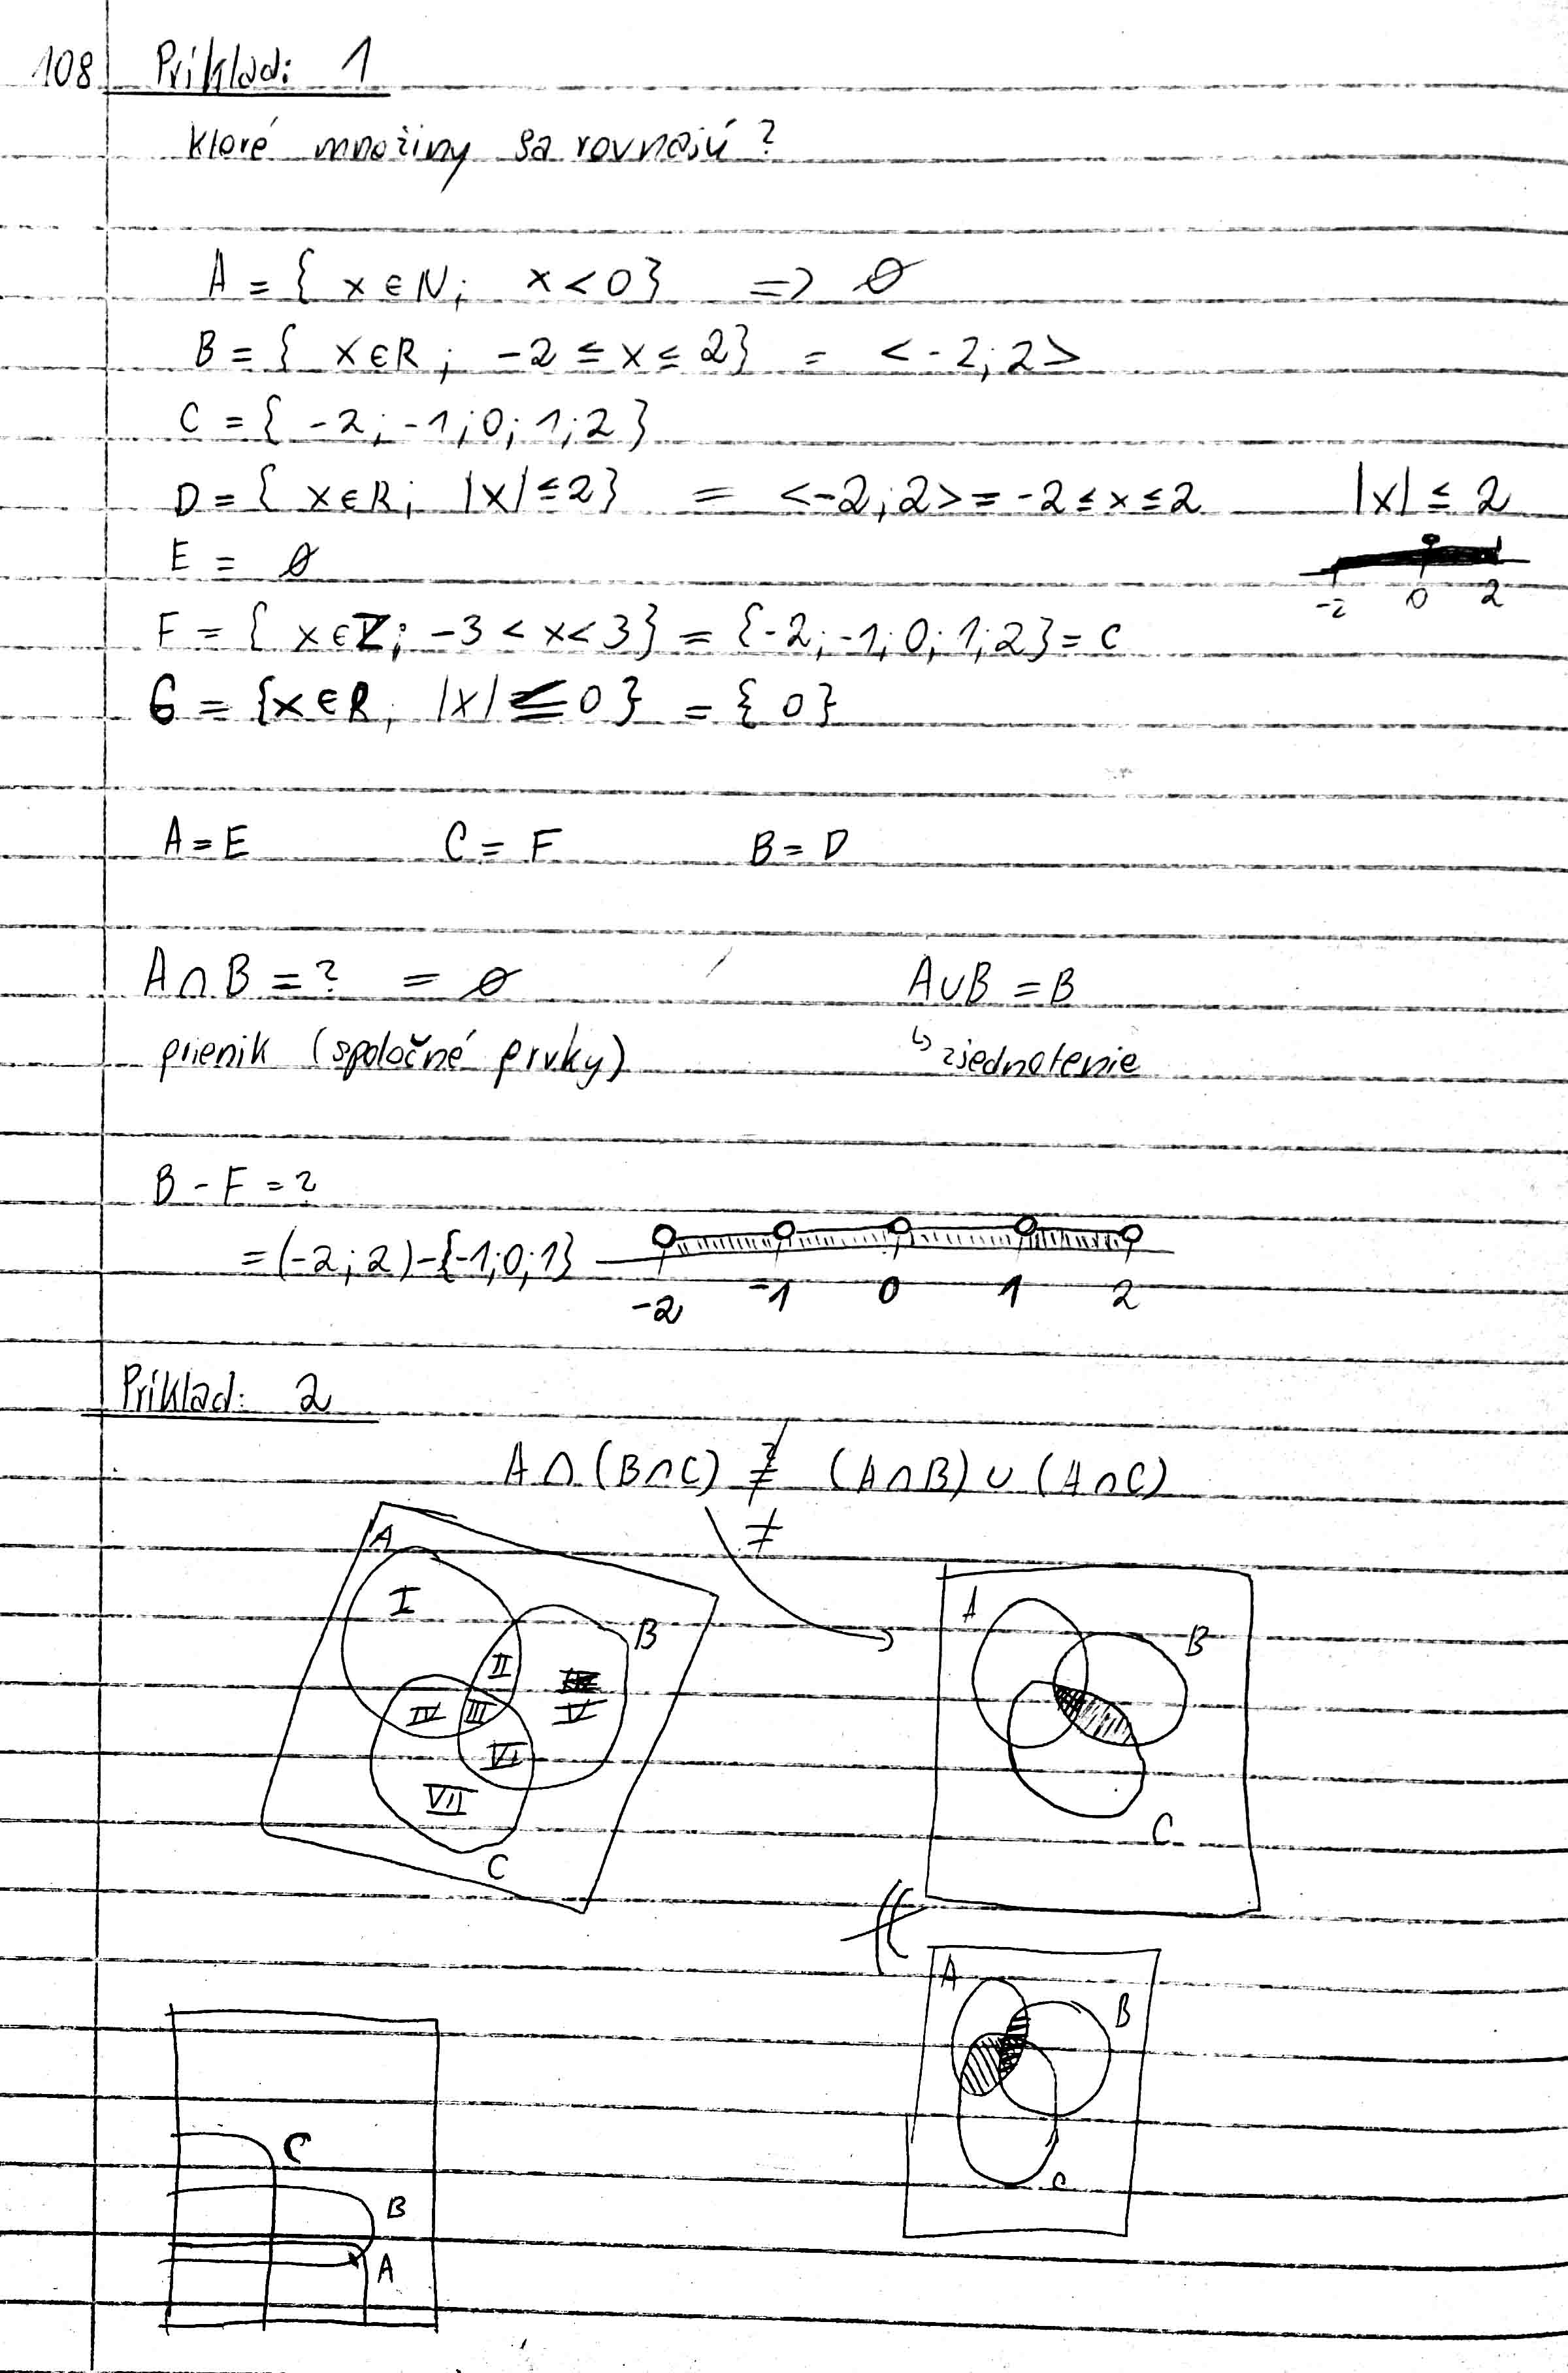 108 Príklad: 1
ktoré množiny sa rovnajú?
A = { x ∈ N; x < 0} => ∅
B = { x ∈ R; -2 ≤ x ≤ 2} = <-2; 2>
C = { -2; -1; 0; 1; 2 }
D = { x ∈ R; |x| ≤ 2} = <-2; 2> = -2 ≤ x ≤ 2 |x| ≤ 2
E = ∅
-2 0 2
F = { x ∈ Z; -3 < x < 3} = {-2; -1; 0; 1; 2} = C
G = {x ∈ R; |x| ≤ 0 } = { 0}
A = E C = F B = D
A ∩ B = ? = ∅ A ∪ B = B
prienik (spoločné prvky) ↳ zjednotenie
B - F = ?
= (-2; 2) - {-1; 0; 1}
-2 -1 0 1 2
Príklad: 2
A ∩ (B ∩ C) ≠ (A ∩ B) ∪ (A ∩ C)
≠
A
I
B
II
V
IV III
VI
VII
C
A
B
C
A
B
C
C
B
A